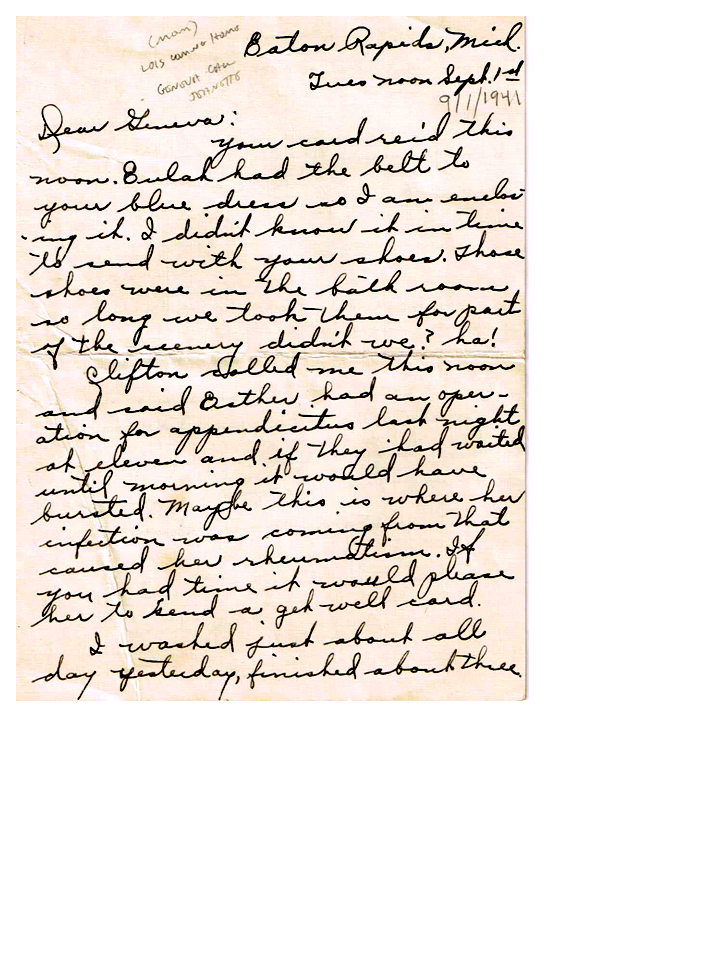 (Mom)
LOIS
GENEVA
Eaton Rapids, Mich.
Tues noon Sept. 1st
9/1/1941
Dear Geneva:
your card rec'd this
noon. Eulah had the belt to
your blue dress so I am enclos-
ing it. I didn't know it in time
to send with your shoes. Those
shoes were in the bath room
so long we took them for part
of the scenery didn't we? ha!
Clifton called me this noon
and said Esther had an oper-
ation for appendicitus last night
at eleven and if they had waited
until morning it would have
bursted. Maybe this is where her
infection was coming from that
caused her rheumatism. If
you had time it would please
her to send a get well card.
I washed just about all
day yesterday, finished about three.